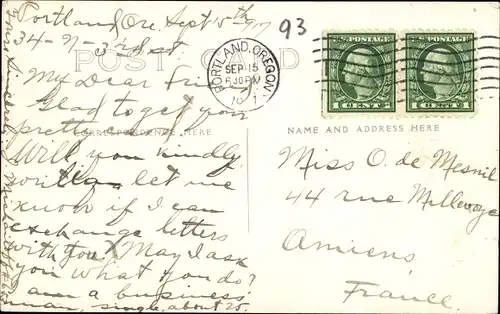 Portland Ore Sept 15th
34-N-3rd st.
93
POST CARD
My Dear friend
Glad to get your
pretty
CORRESPONDENCE HERE
Will you kindly
let me
know if I can
exchange letters
with you? May I ask
you what you do?
I am a business
man, single, about 25.
PORTLAND, OREGON
SEP 15
6 30 PM
U.S. POSTAGE
1 CENT 1
U.S. POSTAGE
1 CENT 1
NAME AND ADDRESS HERE
Miss O. de Mesnil
44 rue Millevoye
Amiens
France.